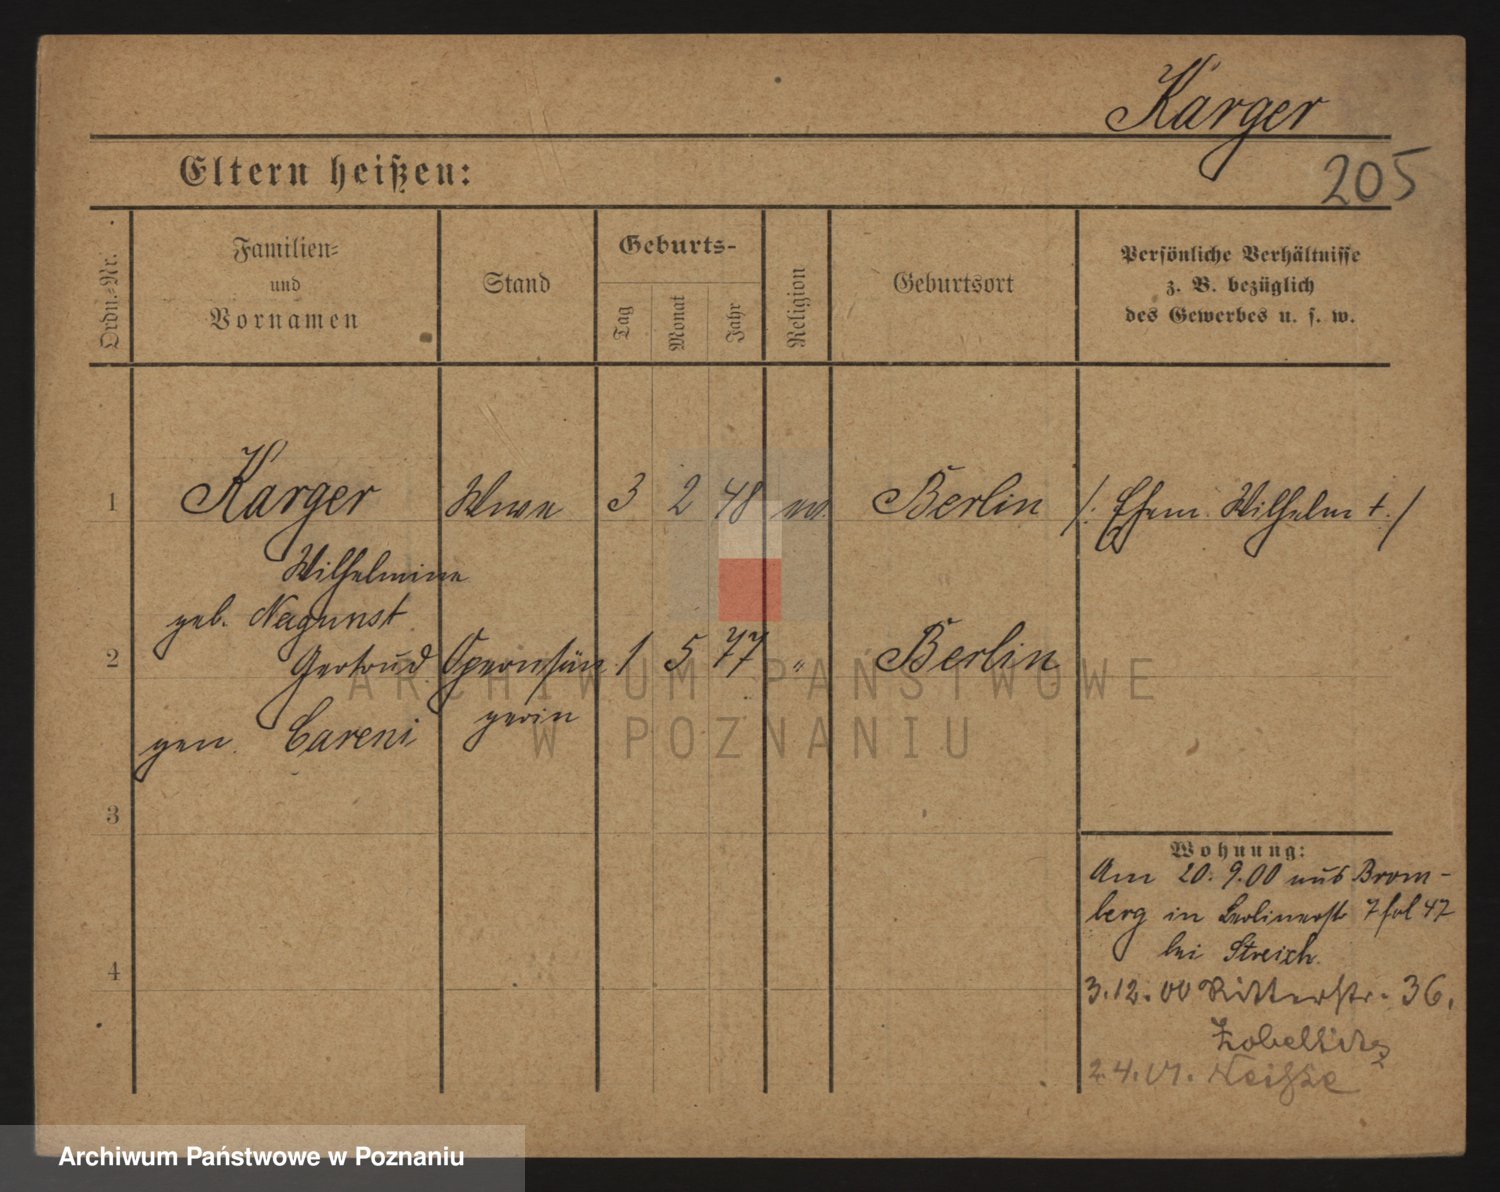 Karger
205
Eltern heißen:
Ordn.-Nr.
Familien-
und
Vornamen
Stand
Geburts-
Tag
Monat
Jahr
Religion
Geburtsort
Persönliche Verhältnisse
z. B. bezüglich
des Gewerbes u. s. w.
1 Karger Wwe 3 2 48 ev. Berlin /: Ehem. Wilhelm †. /
Wilhelmine
geb. Nagunst
2 Gertrud Opernsän 1 5 77 " Berlin
gen. Careni gerin
3
4
Wohnung:
Am 20. 9. 00 aus Brom-
berg in Berlinerstr 7 fol 47
bei Streich.
3.12.00 Ritterstr. 36.
2.4.01. Neiße
ARCHIWUM PAŃSTWOWE
W POZNANIU
Archiwum Państwowe w Poznaniu